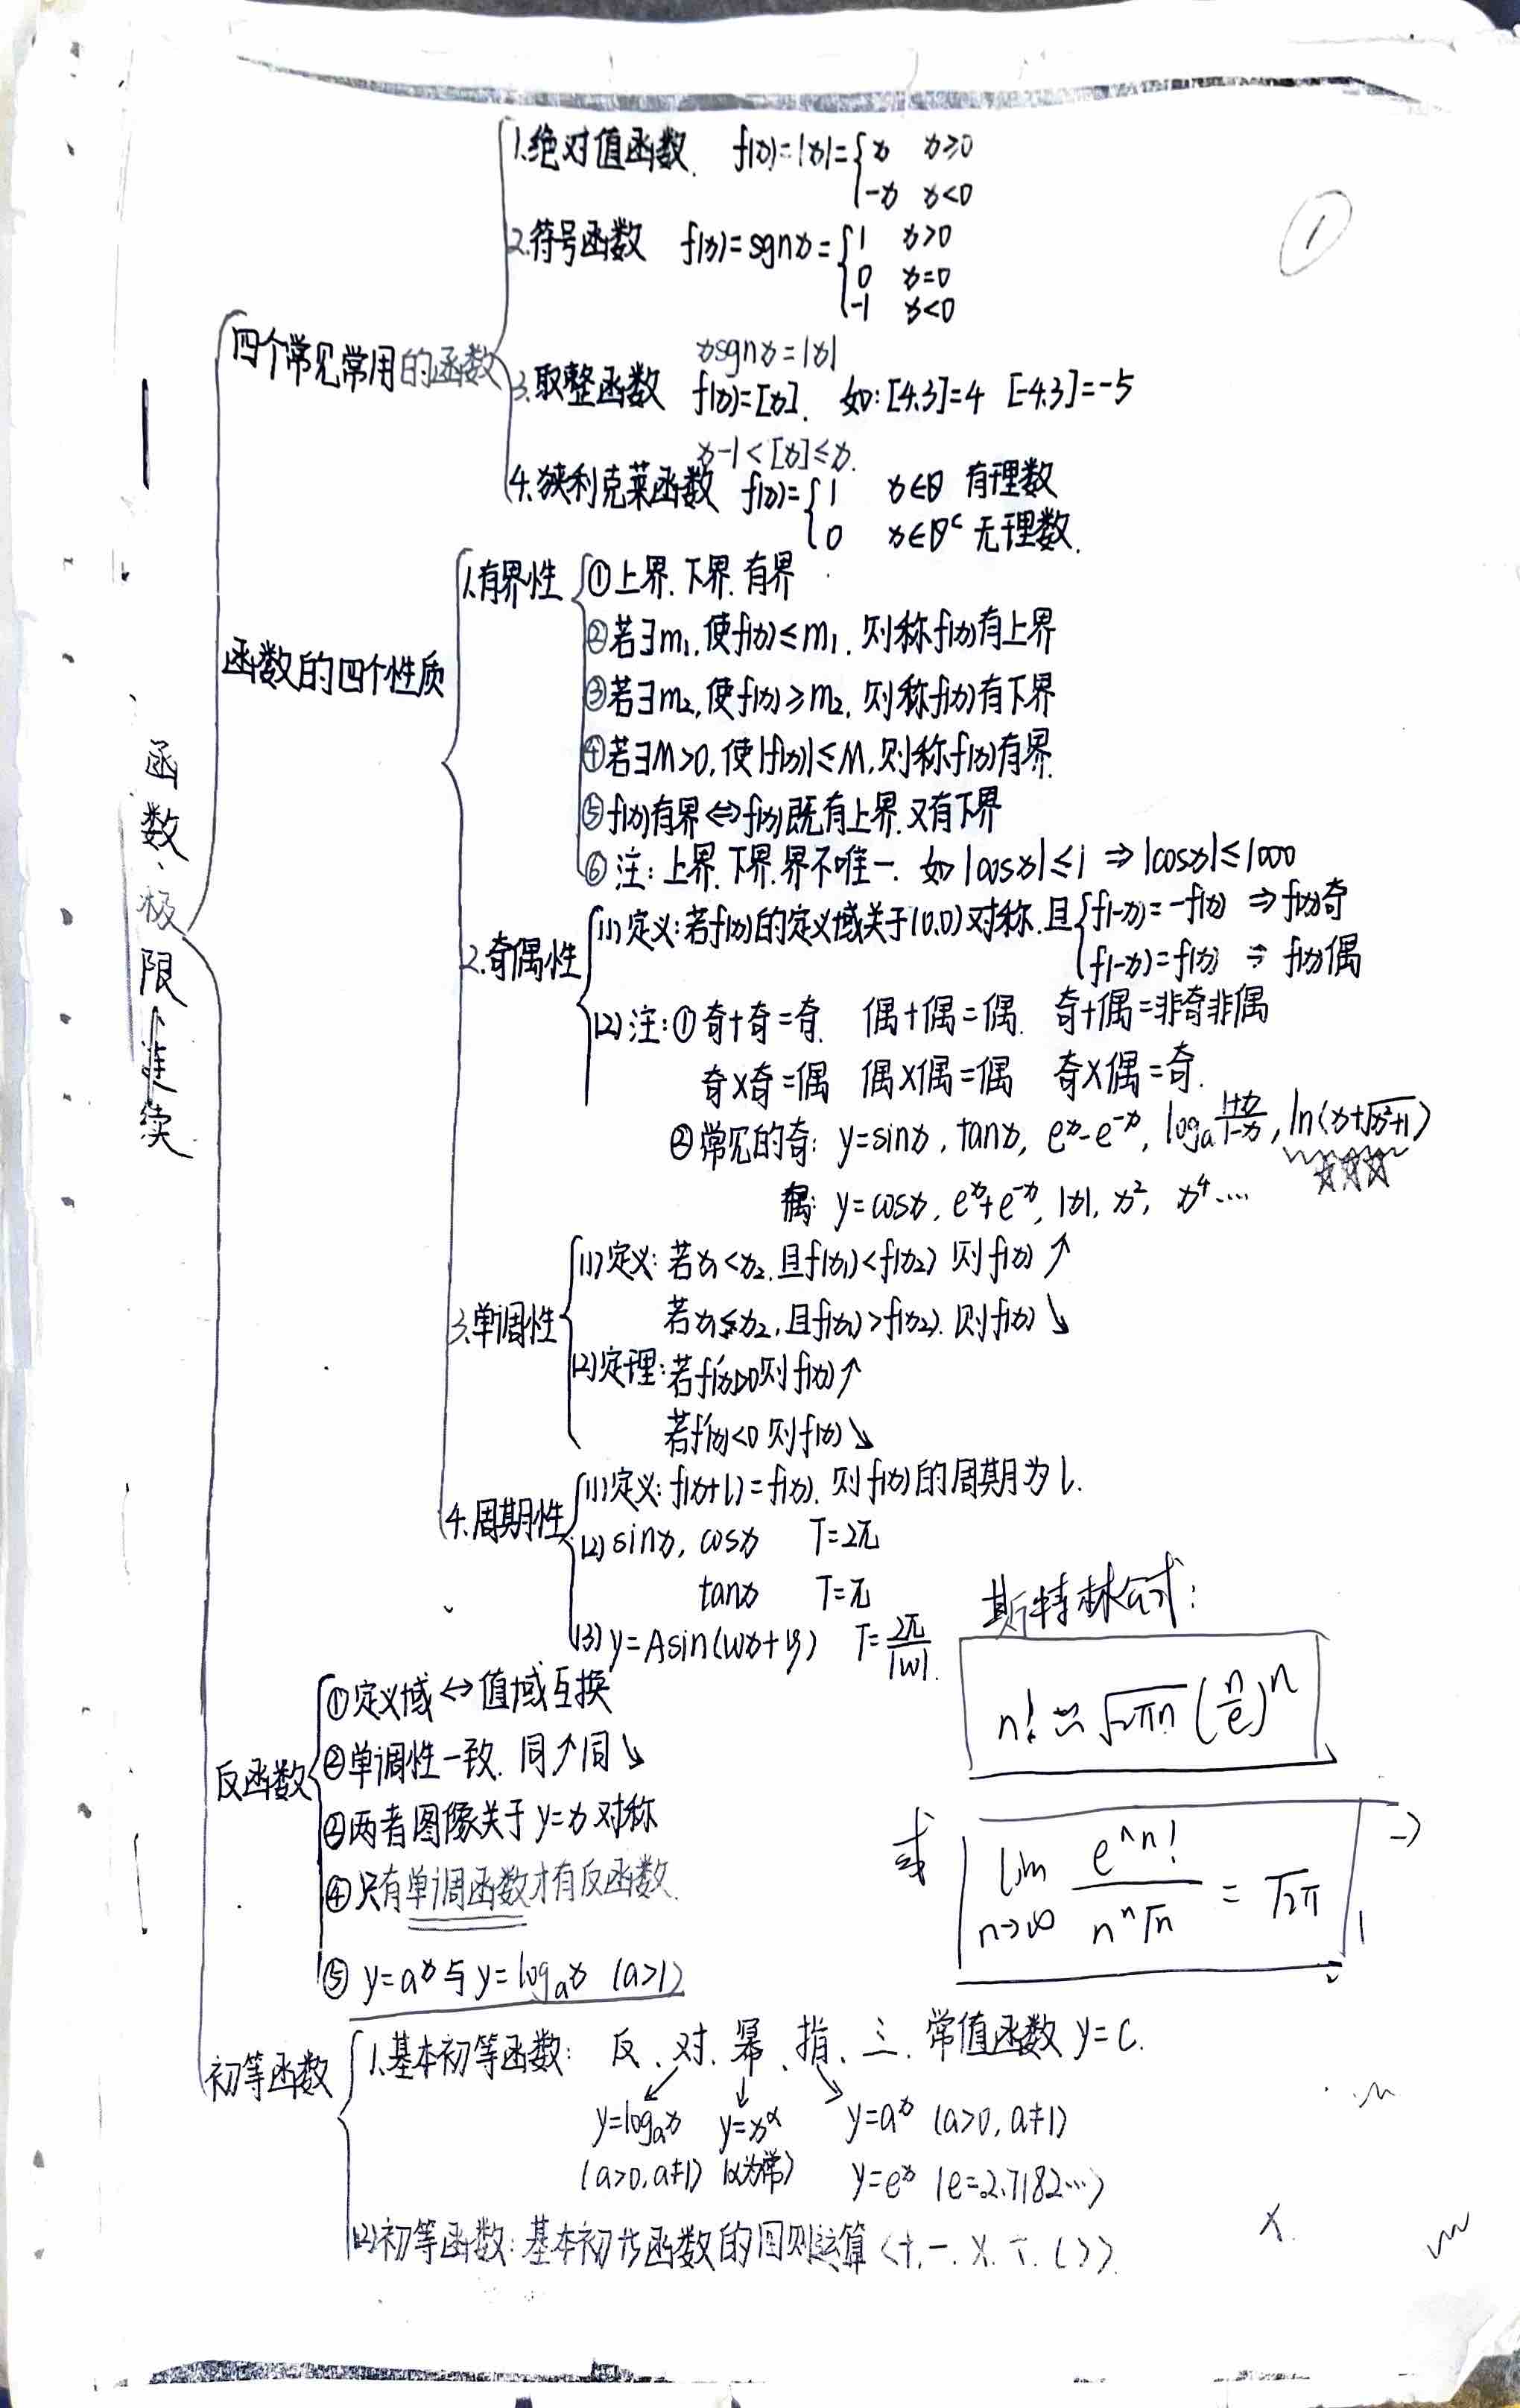 ①
函数、极限、连续
四个常见常用的函数
1.绝对值函数. f(x)=|x|={x x≥0
-x x<0
2.符号函数 f(x)=sgnx={1 x>0
0 x=0
-1 x<0
xsgnx=|x|
3.取整函数 f(x)=[x]. 如:[4.3]=4 [-4.3]=-5
x-1<[x]≤x.
4.狄利克莱函数 f(x)={1 x∈Q 有理数
0 x∈Qᶜ 无理数.
函数的四个性质
1.有界性
①上界.下界.有界
②若∃m₁,使f(x)≤m₁. 则称f(x)有上界
③若∃m₂,使f(x)≥m₂, 则称f(x)有下界
④若∃M>0,使|f(x)|≤M,则称f(x)有界.
⑤f(x)有界⇔f(x)既有上界.又有下界
⑥注:上界.下界.界不唯一. 如|cosx|≤1 ⇒|cosx|≤1000
2.奇偶性
(1)定义:若f(x)的定义域关于(0,0)对称.且{f(-x)=-f(x) ⇒f(x)奇
f(-x)=f(x) ⇒ f(x)偶
(2)注:①奇+奇=奇. 偶+偶=偶. 奇+偶=非奇非偶
奇×奇=偶 偶×偶=偶 奇×偶=奇.
②常见的奇: y=sinx, tanx, eˣ-e⁻ˣ, logₐ(1+x)/(1-x), ln(x+√(x²+1))
☆☆☆
偶: y=cosx, eˣ+e⁻ˣ, |x|, x², x⁴····
3.单调性
(1)定义:若x₁<x₂,且f(x₁)<f(x₂) 则f(x)↗
若x₁<x₂,且f(x₁)>f(x₂). 则f(x)↘
(2)定理:若f'(x)>0则f(x)↗
若f'(x)<0则f(x)↘
4.周期性
(1)定义:f(x+l)=f(x). 则f(x)的周期为l.
(2)sinx, cosx T=2π
tanx T=π
(3)y=Asin(wx+φ) T=2π/|w|.
斯特林公式:
n!≈√2πn (n/e)ⁿ
或 lim n→∞ eⁿn!/nⁿ√n = √2π
反函数
①定义域⇔值域互换
②单调性一致. 同↗同↘
②两者图像关于y=x对称
④只有单调函数才有反函数.
⑤ y=aˣ与y=logₐx (a>1)
初等函数
1.基本初等函数: 反、对、幂、指、三、常值函数 y=C.
y=logₐx y=xᵅ y=aˣ (a>0,a≠1)
(a>0,a≠1) (α为常) y=eˣ (e=2.7182···)
(2)初等函数:基本初等函数的四则运算<+.-.×.÷.( )>.